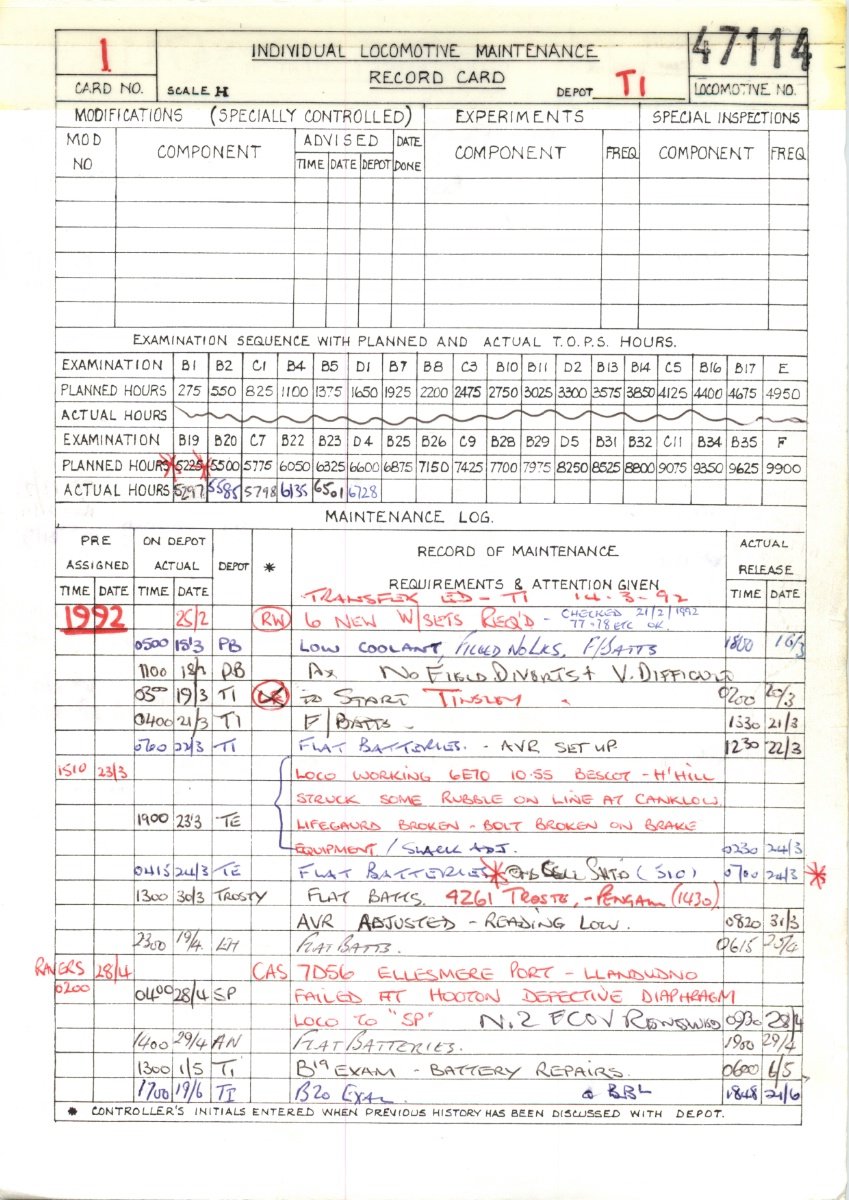 1 INDIVIDUAL LOCOMOTIVE MAINTENANCE 47114
CARD NO. SCALE H RECORD CARD DEPOT TI LOCOMOTIVE NO.
MODIFICATIONS (SPECIALLY CONTROLLED) EXPERIMENTS SPECIAL INSPECTIONS
MOD NO COMPONENT ADVISED DATE DONE COMPONENT FREQ COMPONENT FREQ
TIME DATE DEPOT
EXAMINATION SEQUENCE WITH PLANNED AND ACTUAL T.O.P.S. HOURS.
EXAMINATION B1 B2 C1 B4 B5 D1 B7 B8 C3 B10 B11 D2 B13 B14 C5 B16 B17 E
PLANNED HOURS 275 550 825 1100 1375 1650 1925 2200 2475 2750 3025 3300 3575 3850 4125 4400 4675 4950
ACTUAL HOURS
EXAMINATION B19 B20 C7 B22 B23 D4 B25 B26 C9 B28 B29 D5 B31 B32 C11 B34 B35 F
PLANNED HOURS 5225 5500 5775 6050 6325 6600 6875 7150 7425 7700 7975 8250 8525 8800 9075 9350 9625 9900
ACTUAL HOURS 5297 5585 5798 6135 6501 6728
MAINTENANCE LOG.
PRE ASSIGNED ON DEPOT ACTUAL DEPOT * RECORD OF MAINTENANCE ACTUAL RELEASE
TIME DATE TIME DATE REQUIREMENTS & ATTENTION GIVEN TIME DATE
TRANSFER TI 14-3-92
1992 25/2 RW 6 NEW W/SETS REQ'D - CHECKED 21/2/1992
77-78 ETC OK.
0500 18'3 PB LOW COOLANT, FILLED NO LKS. F/BATTS 1800 18/3
1100 PB Ax NO FIELD DIVERTS + V. DIFFICULT
0300 19/3 TI TO START TINSLEY 0200 20/3
0400 21/3 TI F/BATTS - 1330 21/3
0700 22/3 TI FLAT BATTERIES. - AVR SET UP 1230 22/3
1510 23/3 LOCO WORKING 6E70 10.55 BESCOT - H'HILL
STRUCK SOME RUBBLE ON LINE AT CANKLOW
1900 23'3 TE LIFEGAURD BROKEN - BOLT BROKEN ON BRAKE
EQUIPMENT / SLACK ADJ. 0230 24/3
0415 24/3 TE FLAT BATTERIES * CELL SHT'D (510) 0700 24/3 *
1300 30/3 TROSTY FLAT BATTS. 4261 TROSTY, - PENGAM (1430)
AVR ADJUSTED - READING LOW. 0820 31/3
2300 19/4 LH FLAT BATTS. 0615 25/4
RAVERS 28/4 CAS 7D56 ELLESMERE PORT - LLANDUDNO
0200 0400 28/4 SP FAILED AT HOOTON DEFECTIVE DIAPHRAGM
LOCO TO "SP" N.2 FCOV RENEWED 0930 28/4
1400 29/4 AN FLAT BATTERIES. 1900 29/4
1300 1/5 TI B19 EXAM - BATTERY REPAIRS. 0600 6/5
1700 19/6 TI B20 EXAM. BBL 1848 21/6
* CONTROLLER'S INITIALS ENTERED WHEN PREVIOUS HISTORY HAS BEEN DISCUSSED WITH DEPOT.